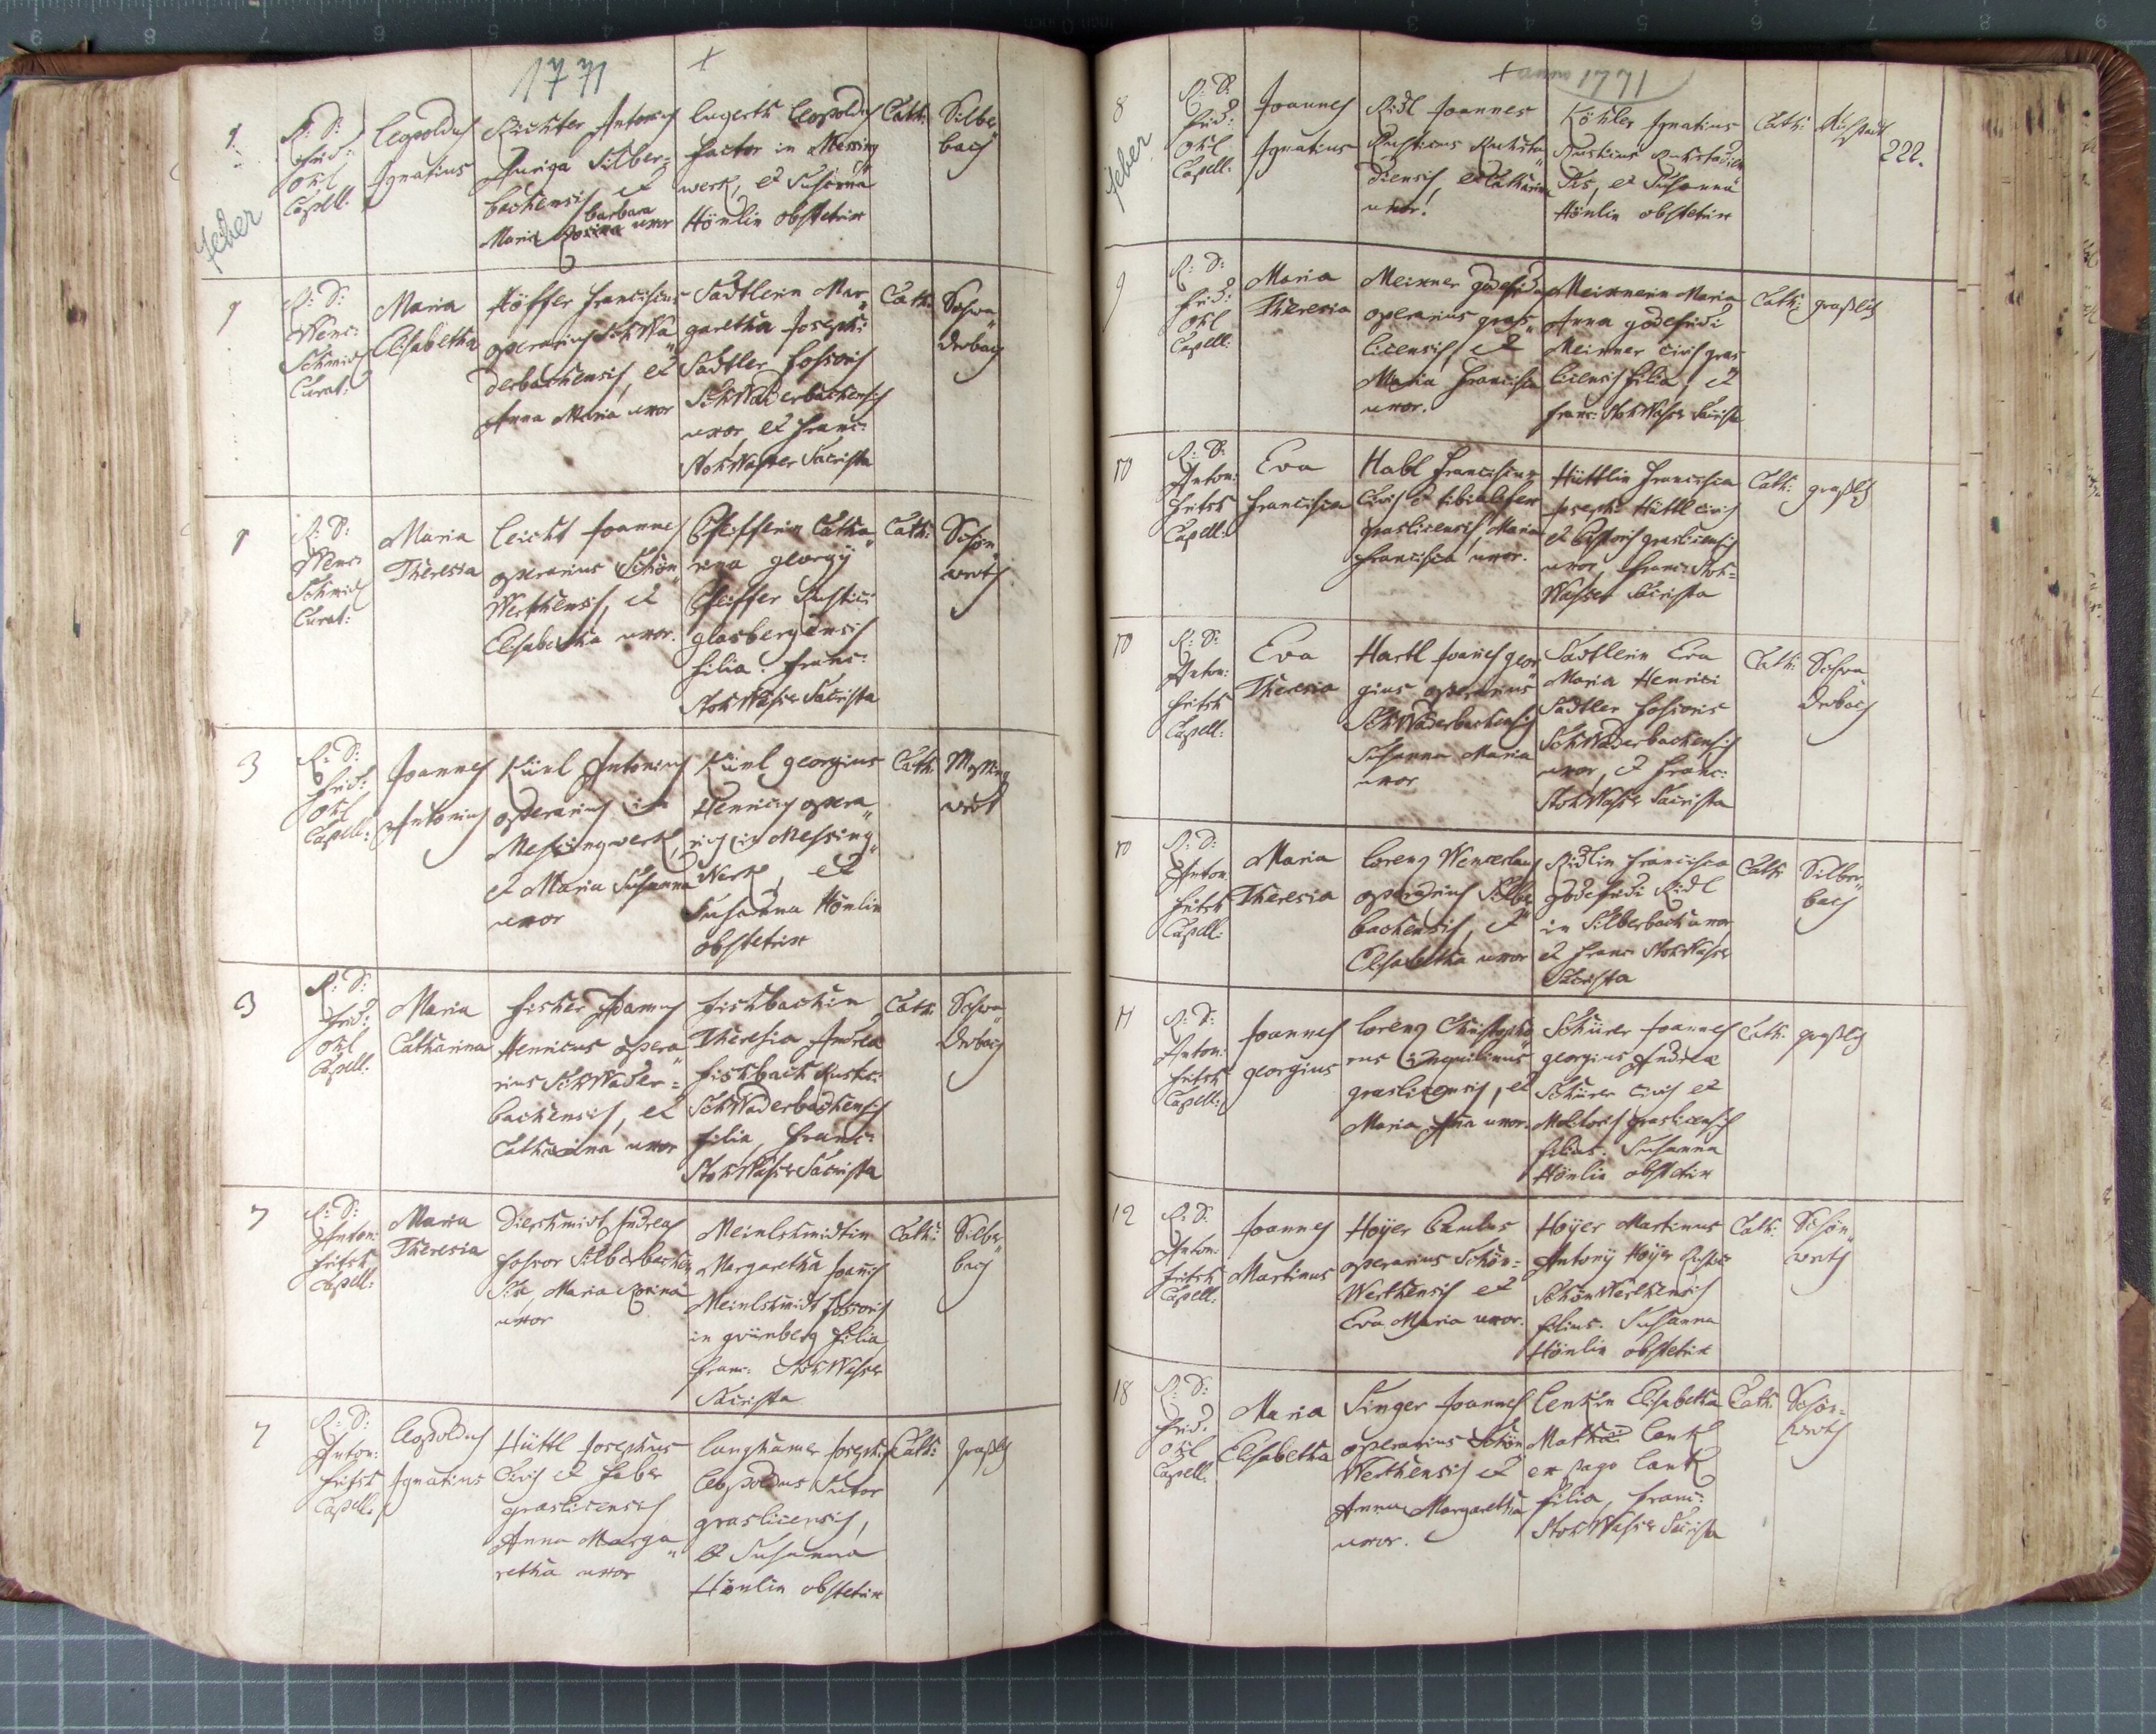 1771
Feber
1
R: D:
Frid:
Okl
Capell:
Leopoldus
Ignatius
Richter Antonius
Auriga Silber=
bachensis et
barbara
Maria Rosina uxor
Lugerth Leopoldus
factor in Messing
werk, et Susanna
Hönlin obstetrix
Cath:
Silber
bach
1
R: D:
Wenc:
Schmid
Curat:
Maria
Elisabetha
Höffer Franciscus
operarius Schwa
derbachensis, et
Anna Maria uxor
Sadtlerin Mar
garetha Josephi
Sadtler fossoris
Schwaderbachensis
uxor, et Franc:
Stokwasser Sacrista
Cath:
Schwa
derbach
1
R: D:
Wenc:
Schmid
Curat:
Maria
Theresia
Leicht Joannes
operarius Schön
Werthensis, et
Elisabetha uxor.
Pfeifferin Catha
rina georgÿ
Pfeiffer Rustici
glasbergensis
filia. Franc:
Stokwasser Sacrista
Cath:
Schön
werth
3
R: D:
Frid:
Okl
Capell:
Joannes
Antonius
Künl Antonius
operarius in
Messingwerk,
et Maria Susanna
uxor
Künl georgius
Henricus opera
rius in Messing
Werk, et
Susanna Hönlin
obstetrix
Cath:
Messing
werk
3
R: D:
Frid:
Okl
Capell:
Maria
Catharina
Fischer Joannes
Henricus opera
rius Schwader=
bachensis, et
Catharina uxor
Fischbachin
Theresia Andrea
Fischbach Rustici
Schwaderbachensis
filia, Franc:
Stokwasser Sacrista
Cath:
Schwa
derbach
7
R: D:
Anton:
Fritsch
Capell:
Maria
Theresia
Dierschmidt Andreas
fossor Silberbachen
sis, Maria Rosina
uxor
Meinlschmidtin
Margaretha Joannis
Meinlschmidt fossoris
in grünberg filia
Franc: Stokwasser
Sacrista
Cath:
Silber
bach
7
R: D:
Anton:
Fritsch
Capell:
Leopoldus
Ignatius
Hüttl Josephus
Civis et Faber
graslicensis
Anna Marga
retha uxor
Langhamer Josephus
Leopoldus Sutor
graslicensis,
et Susanna
Hönlin obstetrix
Cath:
graßlitz
Anno 1771
222.
Feber
8
R: D:
Frid:
Okl
Capell:
Joannes
Ignatius
Ridl Joannes
Rusticus Ruhsta
diensis, et Catharina
uxor.
Köhler Ignatius
Rusticus Ruhstadien
sis, et Susanna
Hönlin obstetrix
Cath:
Ruhstadt
9
R: D:
Frid:
Okl
Capell:
Maria
Theresia
Meixner godefridus
operarius gras
licensis, et
Maria Francisca
uxor.
Meixnerin Maria
Anna godefridi
Meixner civis gras
licensis filia, et
Franc: Stokwasser Sacrista
Cath:
graßlitz
10
R: D:
Anton:
Fritsch
Capell:
Eva
Francisca
Habl Franciscus
Civis et tibialifex
graslicensis, Maria
Francisca uxor.
Hüttlin Francisca
Josephi Hüttl civis
et Pistoris graslicensis
uxor, Franc: Stok=
Wasser Sacrista
Cath:
graßlitz
10
R: D:
Anton:
Fritsch
Capell:
Eva
Theresia
Hartl Joannes geor
gius operarius
Schwaderbachensis
Susanna Maria
uxor
Sadtlerin Eva
Maria Henrici
Sadtler fossoris
Schwaderbachensis
uxor, et Franc:
Stokwasser Sacrista
Cath:
Schwa
derbach
10
R: D:
Anton:
Fritsch
Capell:
Maria
Theresia
Lorenz Wenceslaus
operarius Silber
bachensis, et
Elisabetha uxor
Ridlin Francisca
godefridi Ridl
in Silberbach uxor
et Franc: Stokwasser
Sacrista
Cath:
Silber
bach
11
R: D:
Anton:
Fritsch
Capell:
Joannes
georgius
Lorenz Christopho
rus inquilinus
graslicensis, et
Maria Anna uxor.
Schürer Joannes
georgius Andreæ
Schürer civis et
Molitoris graslicensis
filius. Susanna
Hönlin obstetrix
Cath:
graßlitz
12
R: D:
Anton:
Fritsch
Capell:
Joannes
Martinus
Hoÿer Paulus
operarius Schön=
Werthensis et
Eva Maria uxor.
Hoÿer Martinus
Antonÿ Hoÿer Rustici
Schönwerthensis
filius. Susanna
Hönlin obstetrix
Cath:
Schön
werth
18
R: D:
Frid:
Okl
Capell:
Maria
Elisabetha
Singer Joannes
operarius Schön
Werthensis et
Anna Margaretha
uxor.
Lenkin Elisabetha
Mathæi Lenk
ex pago Lenk
filia, Franc:
Stokwasser Sacrista
Cath:
Schön=
werth